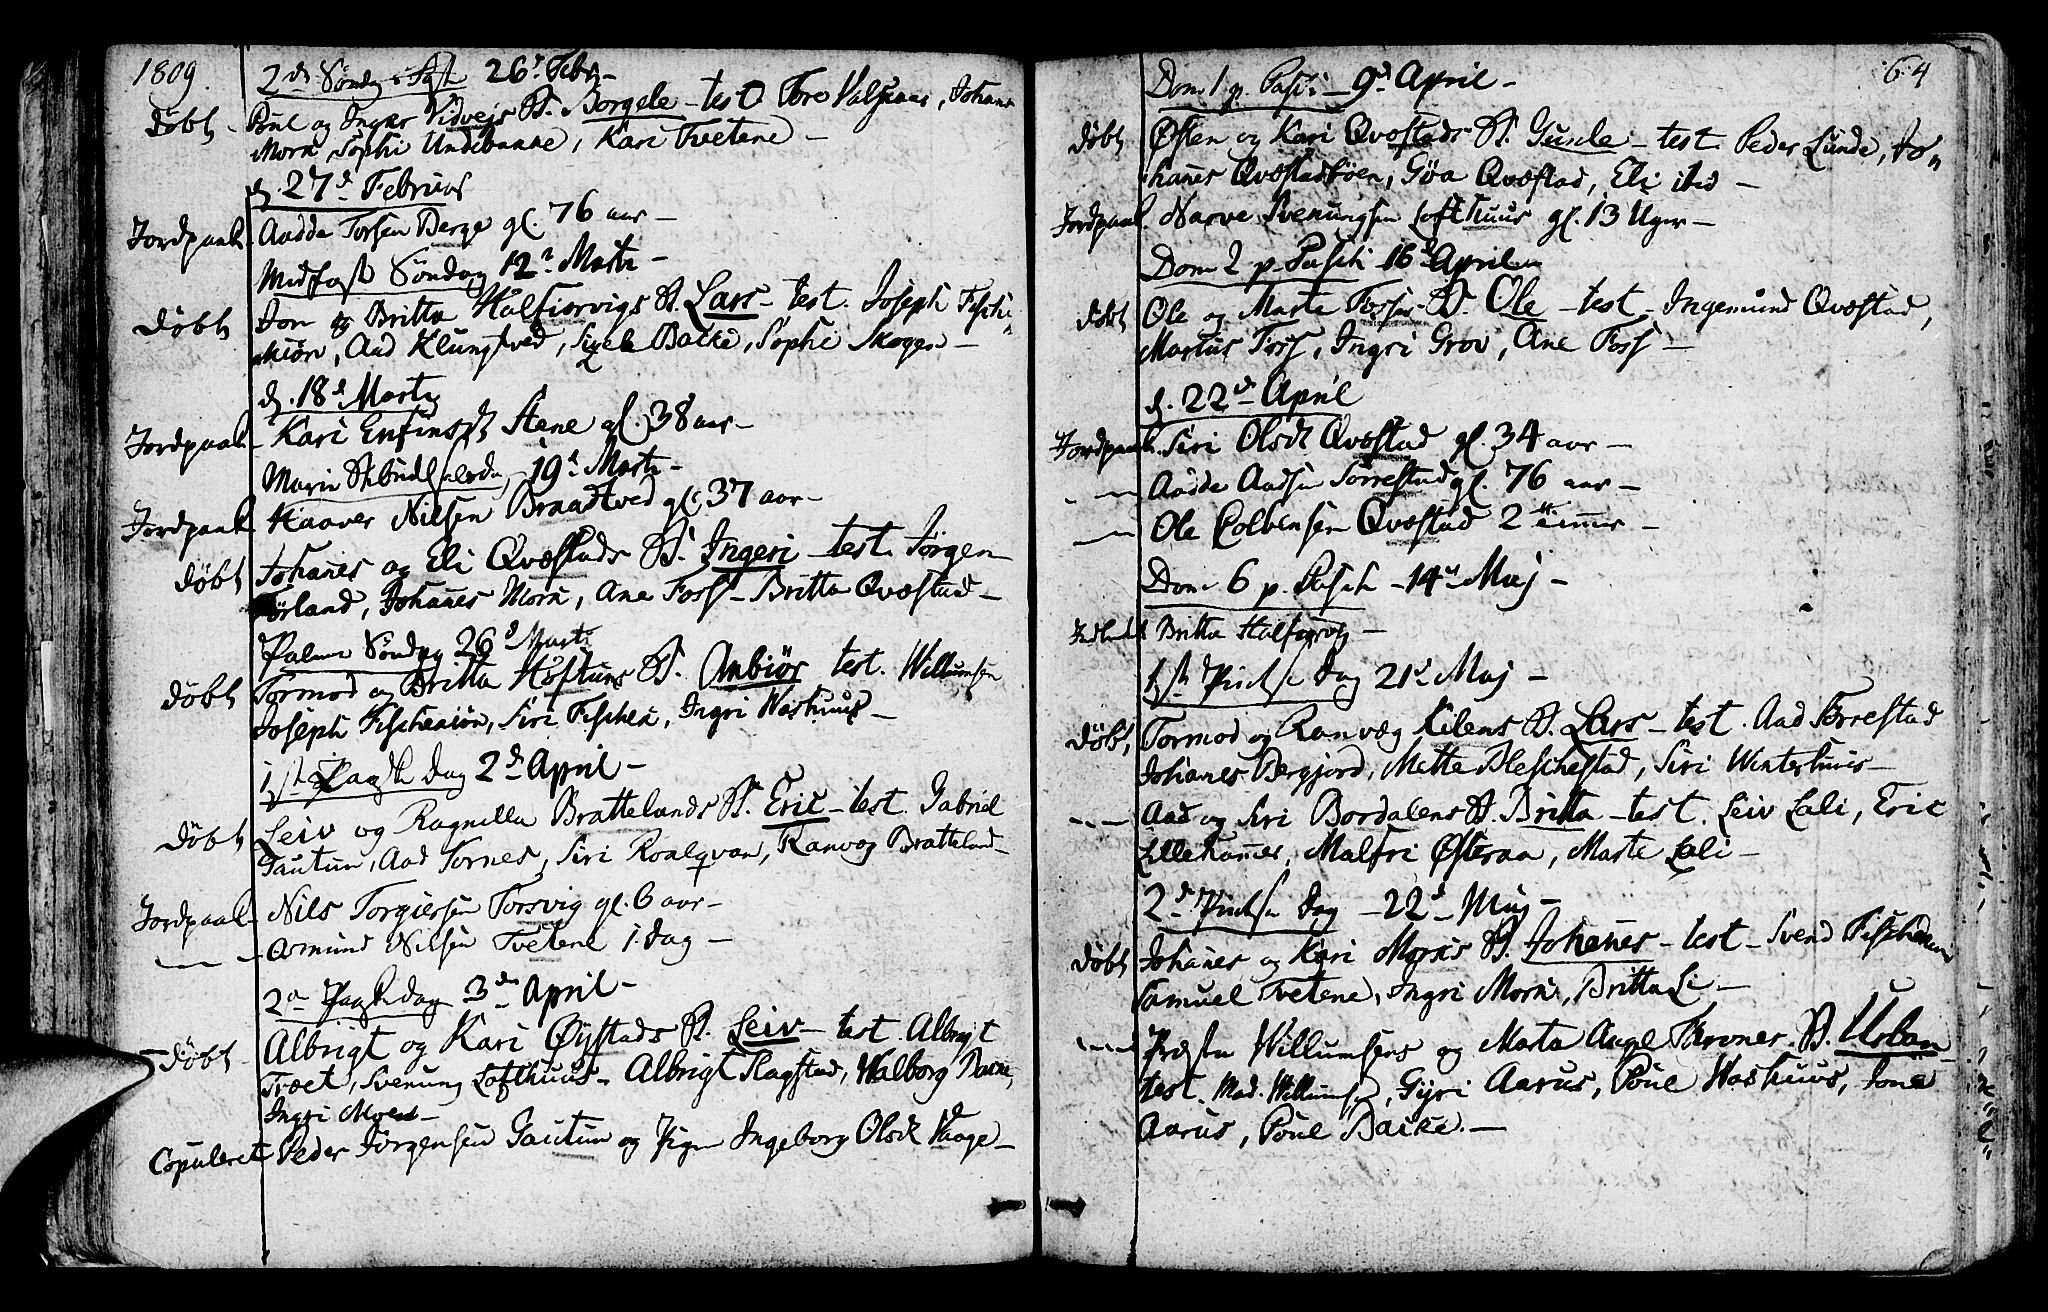 1809.
2de Søndg i Fast 26de Febr
Døbt - Poul og Inger Vidvejs B. Borgele - test Tore Valsnaas, Johanes
Morn, Sophi Undebakke, Kari Tvetene -
d. 27de Februar
Jordpaak. Aadde Torsen Berge gl. 76 aar -
Midfast Søndag 12te Marts -
Døbt Jon og Britta Halfiorvigs B. Lars - test. Joseph Fische-
miøn, Aad Klungtved, Sivele Backe, Sophi Skogen -
d. 18de Marts
Jordpaak - Kari Enfinsdt Stene gl. 38 aar -
Mariæ Bebudelsesdag 19de Marts -
Jordpaak - Haaver Nilsen Braadtved gl. 37 aar -
Døbt Johanes og Eli Qvæstads B. Ingeri - test. Jørgen
Førland, Johanes Morn, Ane Foss - Britta Qvæstad -
Palme Søndag 26de Marts
Døbt Tormod og Britta Høftuns B. Anbiør test. Willumsen
Joseph Fischemiøn, Siri Fischen, Ingri Washuus -
1ste Paaske dag 2den April -
Døbt Leiv og Ragnilla Brattelands B. Eric - test. Gabriel
Tautun, Aad Tornes, Siri Roalqvam, Ranvog Bratteland -
Jordpaak - Nils Torgiersen Torsvig gl. 6 aar -
- Asmund Nilsen Tvetene 1. dag -
2den Paaskedag 3den April -
Døbt Albrigt og Kari Øystads B. Leiv - test. Albrigt
Træet, Svenung Lofthuus - Albrigt Slagstad, Walborg
Ingri Moen -
Copuleret Peder Jørgensen Tautun og Pigen Ingeborg Olsdt Haage -
64
Dom 1 p. Pasc: - 9de April -
Døbt Østen og Kari Qvæstads B. Gunle - test. Peder Lunde, Jo-
hanes Qvæstadbøen, Gøa Qvæstad, Eli ibid -
Jordpaak. Narve Svenungsen Lofthuus gl. 13 Uger -
Dom 2 p. Pasch 16de April -
Døbt Ole og Marte Fosses B. Ole - test - Ingemund Qvæstad,
Martus Foss, Ingri Grov, Ane Foss -
d. 22de April
Jordpaak. Siri Olsdt Qvæstad gl. 34 aar -
- Aadde Aadsen Torrestad gl. 76 aar -
- Ole Colbensen Qvæstad 2 timer -
Dom 6 p. Pasch - 14de Maj -
Indledet Britta Halfiorvig -
1ste Pindse Dag 21de Maj -
Døbt Tormod og Ranvæg Kilens B. Lars - test. Aad Torrestad
Johanes Bergjord, Mette Bleschestad, Siri Winterhuus -
- Aad og Siri Bordalens B. Britta - test. Leiv Lali, Eric
Lillehammer, Malfri Østeraa, Marte Lali -
2den Pindse Dag - 22de Maj -
Døbt Johanes og Kari Morns B. Johanes - test - Svend Fischemiøn
Samuel Tvetene, Ingri Morn, Britta Li -
- Præsten Willumsens og Marta Angel Thrones B. Urban
test. Mad. Willumsen, Gyri Aarus, Poul Washuus, Jone
Aarus, Poul Backe. -